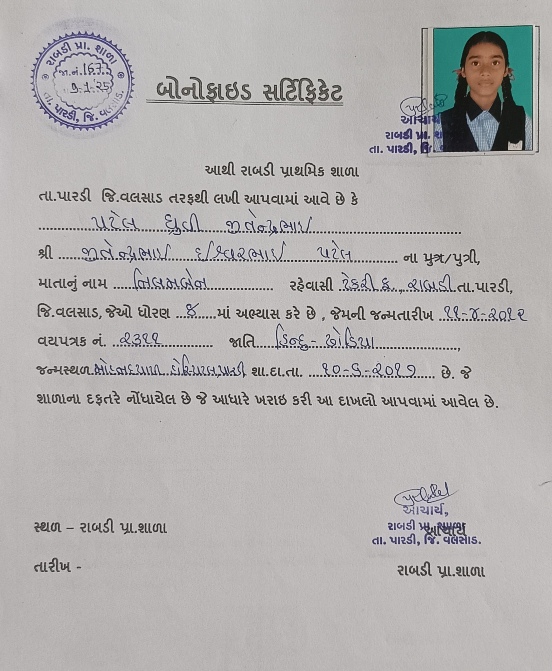 રાબડી પ્રા. શાળા
જા.નં. 167
9-1-25
તા. પારડી, જિ. વલસાડ.
બોનોફાઇડ સર્ટિફિકેટ
આચાર્ય
રાબડી પ્રા. શા
તા. પારડી, જિ.
આથી રાબડી પ્રાથમિક શાળા
તા.પારડી જિ.વલસાડ તરફથી લખી આપવામાં આવે છે કે
પટેલ ધ્રુવી જીતેન્દ્રભાઇ
શ્રી જીતેન્દ્રભાઇ ઇશ્વરભાઇ પટેલ ના પુત્ર/પુત્રી,
માતાનું નામ નિલમબેન રહેવાસી ટેકરી ફ., રાબડી તા.પારડી,
જિ.વલસાડ, જેઓ ધોરણ માં અભ્યાસ કરે છે , જેમની જન્મતારીખ ૧૧-૪-૨૦૧૨
વયપત્રક નં. ૨૩૧૧ જાતિ હિન્દુ - ધોડિયા ,
જન્મસ્થળ હોસ્પિટલ, પારડી શા.દા.તા. ૧૦-૬-૨૦૧૭ છે. જે
શાળાના દફતરે નોંધાયેલ છે જે આધારે ખરાઇ કરી આ દાખલો આપવામાં આવેલ છે.
આચાર્ય,
રાબડી પ્રા. શાળા
તા. પારડી, જિ. વલસાડ.
આચાર્ય
સ્થળ – રાબડી પ્રા.શાળા
તારીખ -
રાબડી પ્રા.શાળા